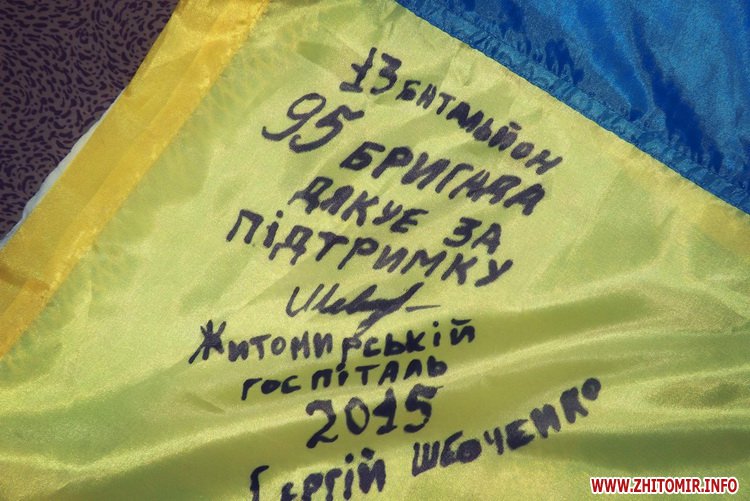 13 БАТАЛЬЙОН
95 БРИГАДА
ДЯКУЄ ЗА
ПІДТРИМКУ
ЖИТОМИРСЬКІЙ
ГОСПІТАЛЬ
2015
СЕРГІЙ
WWW.ZHITOMIR.INFO